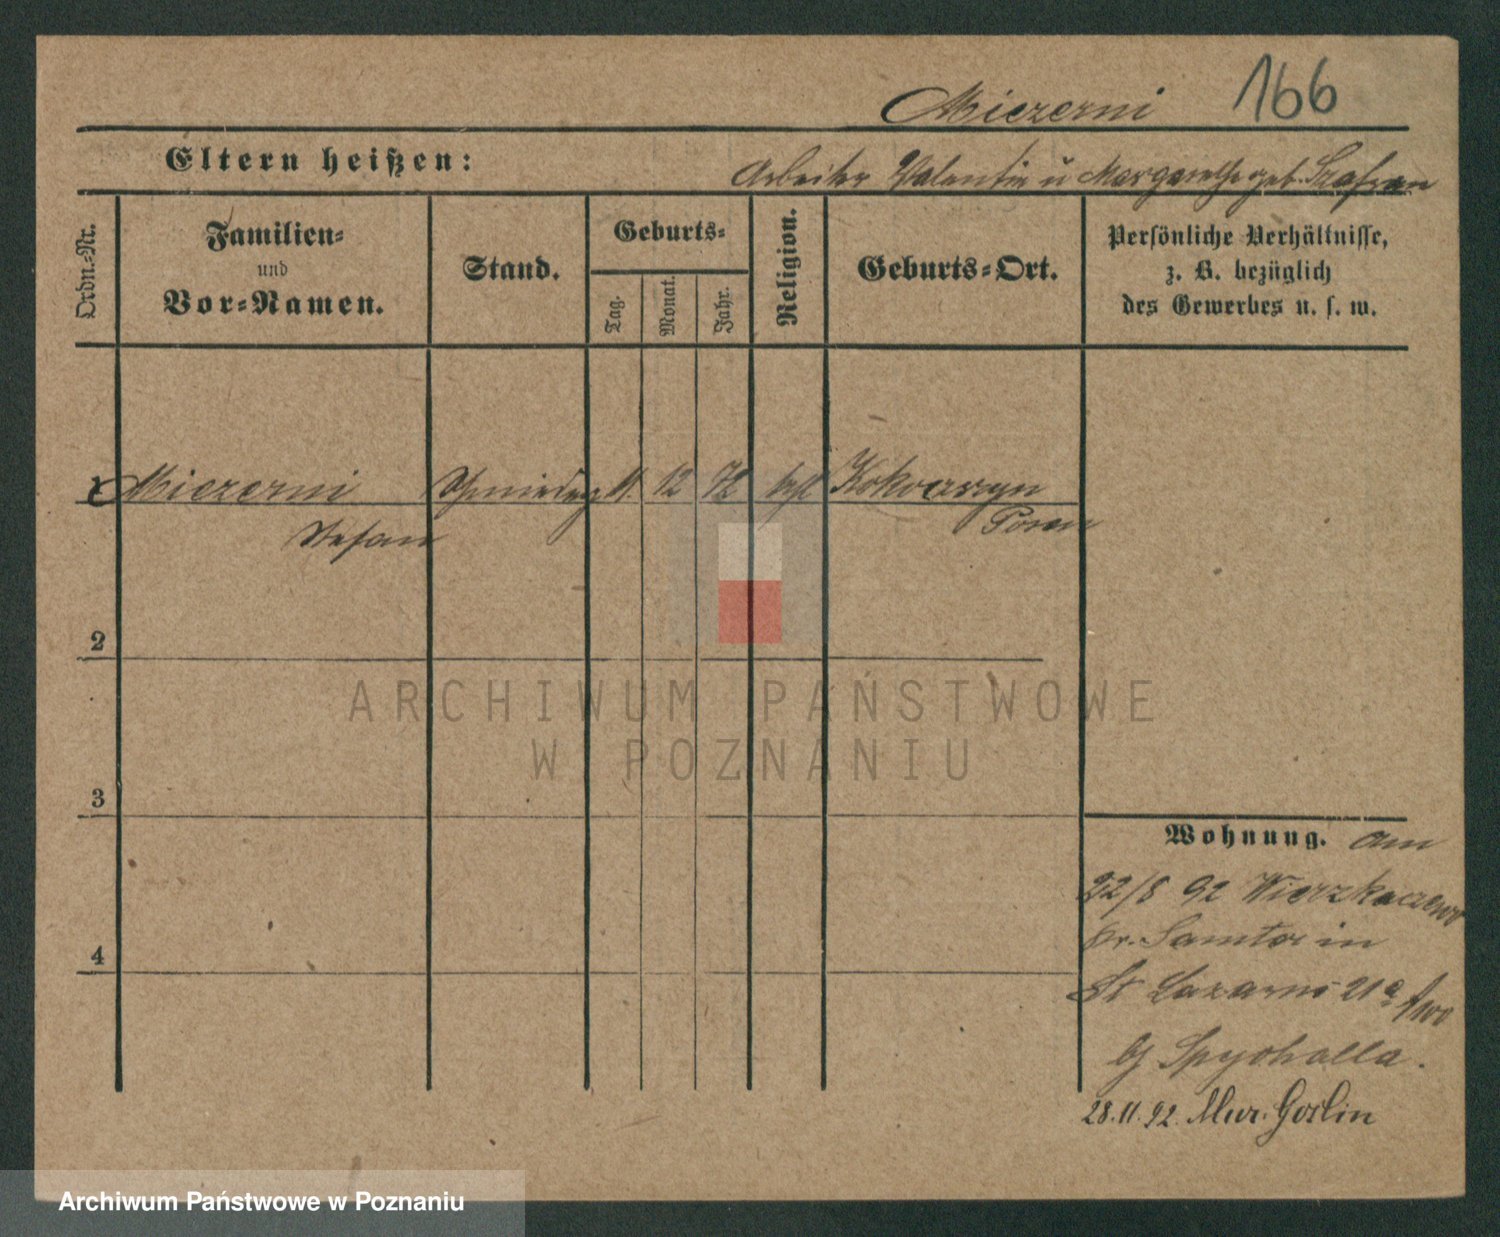 Miczerni 166
Eltern heißen: Arbeiter Valentin u Margarethe geb. Szafran
Ordn.-Nr.
Familien-
und
Vor-Namen.
Stand.
Geburts-
Tag.
Monat.
Jahr.
Religion.
Geburts-Ort.
Persönliche Verhältnisse,
z. B. bezüglich
des Gewerbes u. s. w.
1 Miczerni 11. 12 72 kath
Stefan Posen
2
ARCHIWUM PAŃSTWOWE
W POZNANIU
3
Wohnung. am
22/8 92 Wierzkaczewo
Kr. Samter in
St Lazarus 21a
b/ Spychalla.
4
28.11.92. Mur. Goslin
Archiwum Państwowe w Poznaniu